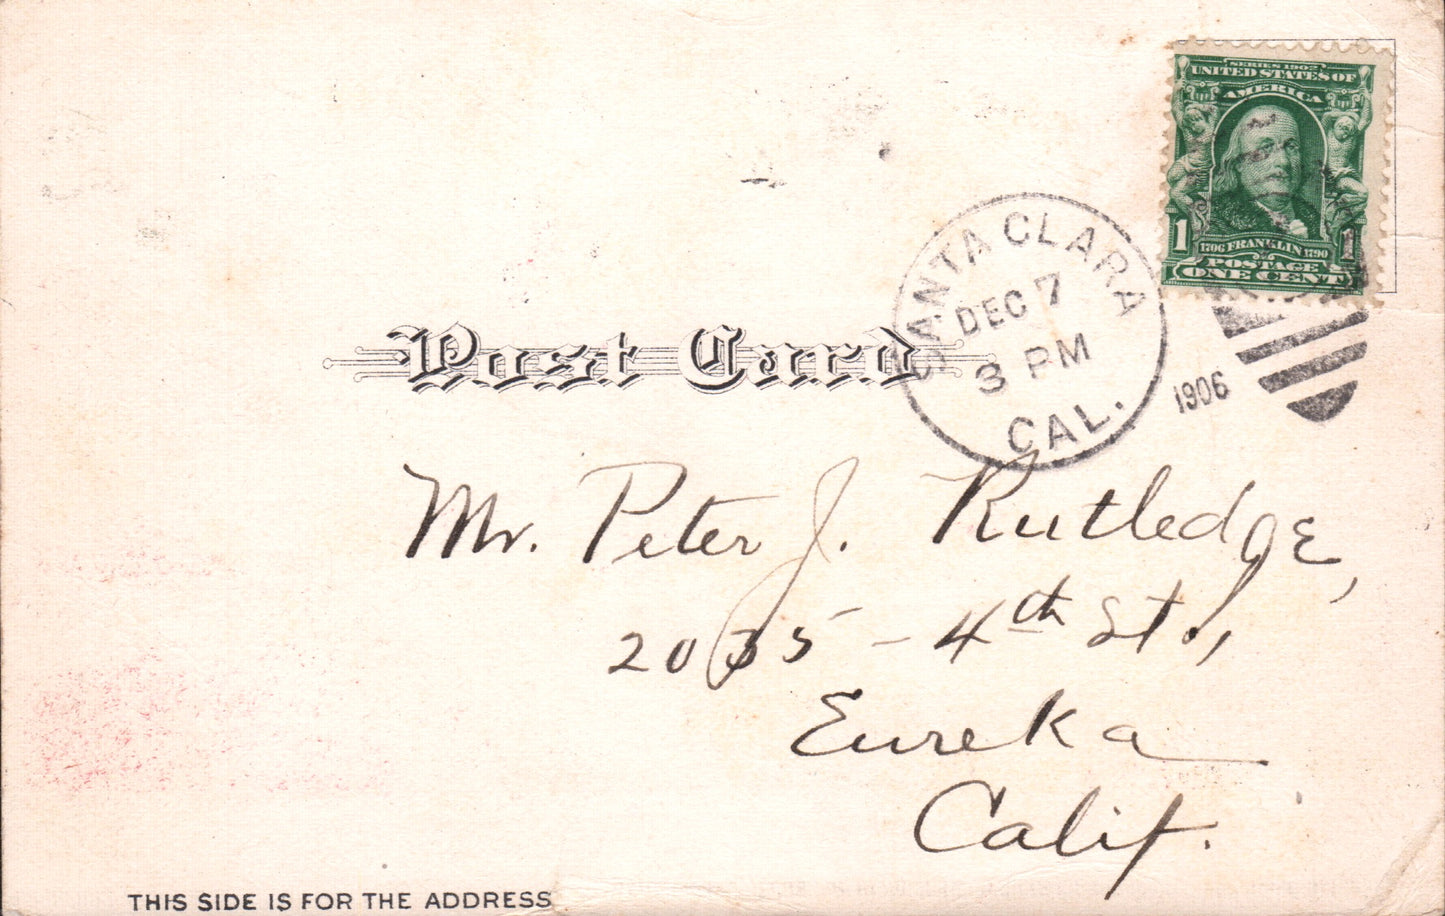 SERIES 1902
UNITED STATES OF
AMERICA
1 1
1706 FRANKLIN 1790
POSTAGE
ONE CENT
SANTA CLARA
DEC 7
3 PM
CAL.
1906
Post Card
Mr. Peter J. Rutledge,
2035 - 4th St.,
Eureka
Calif.
THIS SIDE IS FOR THE ADDRESS